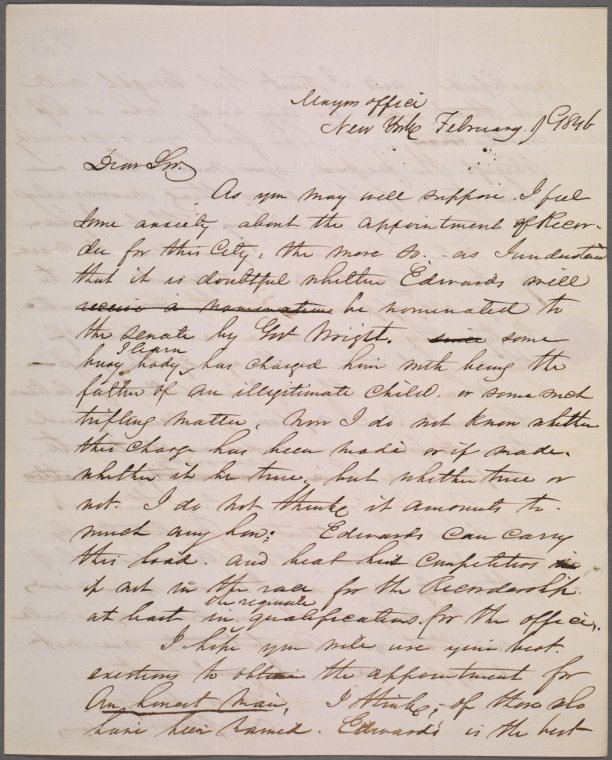 Mayors office
New York February 9 1846
Dear Sir.
As you may well suppose. I feel
some anxiety. about the appointment of Recor-
der for this City, the more so. as I understand
that it is doubtful whether Edwards will
receive a nomination be nominated to
the senate by Govr Wright. since some
busy body, I learn has charged him with being the
father of an illegitimate child. or some such
trifling matter, Now I do not know whether
this charge has been made or if made.
whether it be true, but whether true or
not. I do not think it amounts to.
much any how: Edwards can carry
this load. and beat his competitors in
if not in the race for the Recordership
at least in the requisite qualifications for the office,.
I hope you will use your best.
exertions to obtain the appointment for
An honest man, I think, of those who
have been named. Edwards is the best